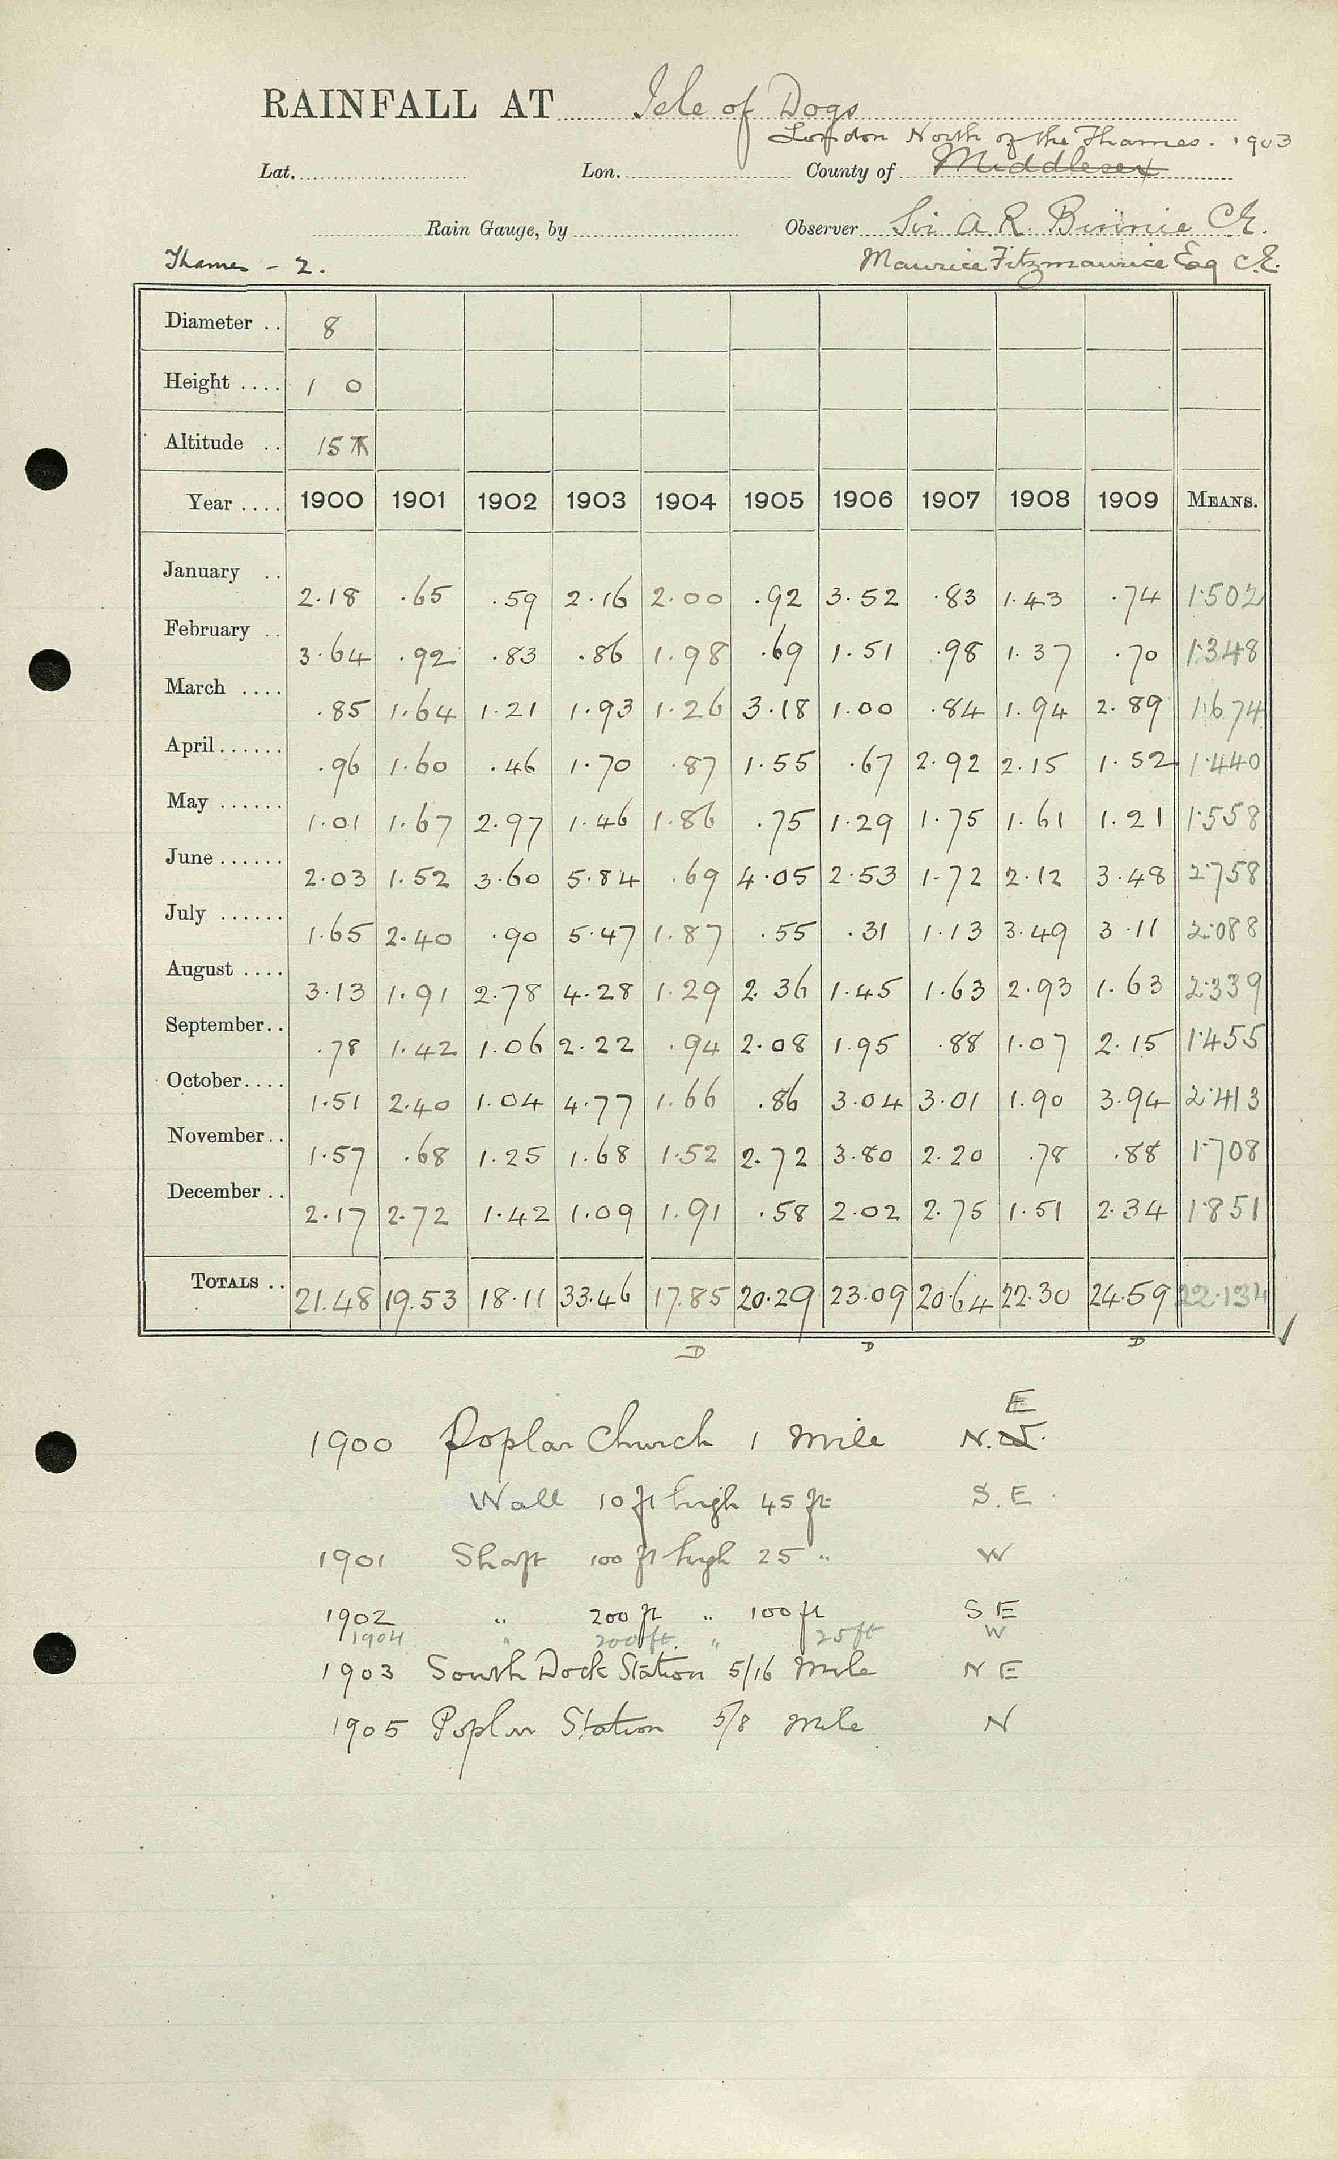 RAINFALL AT Isle of Dogs
London North of the Thames. 1903
Lat. Lon. County of Middlesex
Rain Gauge, by Observer Sir A. R. Binnie C.E.
Thames - 2. Maurice Fitzmaurice Esq C.E.
Diameter .. 8
Height .... 1 0
Altitude .. 15
Year .... 1900 1901 1902 1903 1904 1905 1906 1907 1908 1909 MEANS.
January .. 2.18 .65 .59 2.16 2.00 .92 3.52 .83 1.43 .74 1.502
February .. 3.64 .92 .83 .86 1.98 .69 1.51 .98 1.37 .70 1.348
March .... .85 1.64 1.21 1.93 1.26 3.18 1.00 .84 1.94 2.89 1.674
April ...... .96 1.60 .46 1.70 .87 1.55 .67 2.92 2.15 1.52 1.440
May ...... 1.01 1.67 2.97 1.46 1.86 .75 1.29 1.75 1.61 1.21 1.558
June ...... 2.03 1.52 3.60 5.84 .69 4.05 2.53 1.72 2.12 3.48 2.758
July ...... 1.65 2.40 .90 5.47 1.87 .55 .31 1.13 3.49 3.11 2.088
August .... 3.13 1.91 2.78 4.28 1.29 2.36 1.45 1.63 2.93 1.63 2.339
September .. .78 1.42 1.06 2.22 .94 2.08 1.95 .88 1.07 2.15 1.455
October .... 1.51 2.40 1.04 4.77 1.66 .86 3.04 3.01 1.90 3.94 2.413
November .. 1.57 .68 1.25 1.68 1.52 2.72 3.80 2.20 .78 .88 1.708
December .. 2.17 2.72 1.42 1.09 1.91 .58 2.02 2.75 1.51 2.34 1.851
TOTALS .. 21.48 19.53 18.11 33.46 17.85 20.29 23.09 20.64 22.30 24.59 22.134 ✓
D D D
E
1900 Poplar Church 1 mile N.
Wall 10 ft high 45 ft S.E.
1901 Shaft 100 ft high 25 " W
1902 " 200 ft " 100 ft SE
1904 " 200 ft. " 25 ft W
1903 South Dock Station 5/16 mile NE
1905 Poplar Station 5/8 mile N